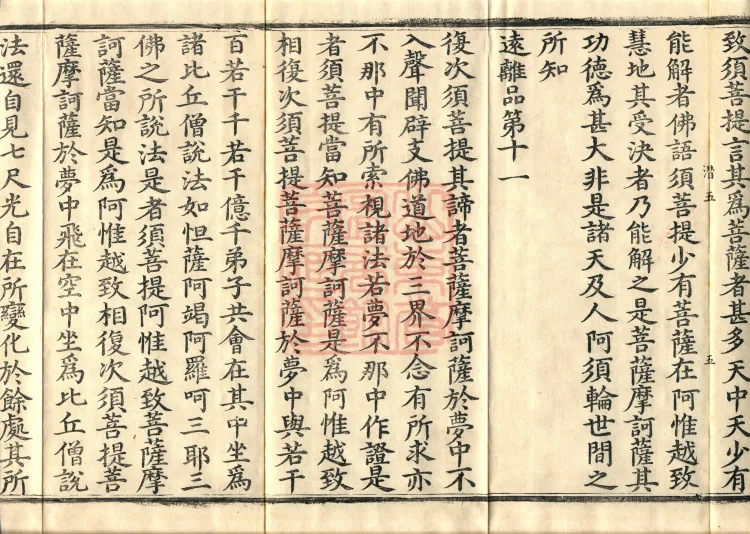 致須菩提言其為菩薩者甚多天中天少有
能解者佛語須菩提少有菩薩在阿惟越致
慧地其受決者乃能解之是菩薩摩訶薩其
功德為甚大非是諸天及人阿須輪世間之
所知
遠離品第十一
復次須菩提其諦者菩薩摩訶薩於夢中不
入聲聞辟支佛道地於三界不念有所求亦
不那中有所索視諸法若夢不那中作證是
者須菩提當知菩薩摩訶薩是為阿惟越致
相復次須菩提菩薩摩訶薩於夢中與若干
百若干千若干億千弟子共會在其中坐為
諸比丘僧說法如怛薩阿竭阿羅呵三耶三
佛之所說法是者須菩提阿惟越致菩薩摩
訶薩當知是為阿惟越致相復次須菩提菩
薩摩訶薩於夢中飛在空中坐為比丘僧說
法還自見七尺光自在所變化於餘處其所
潛五
五